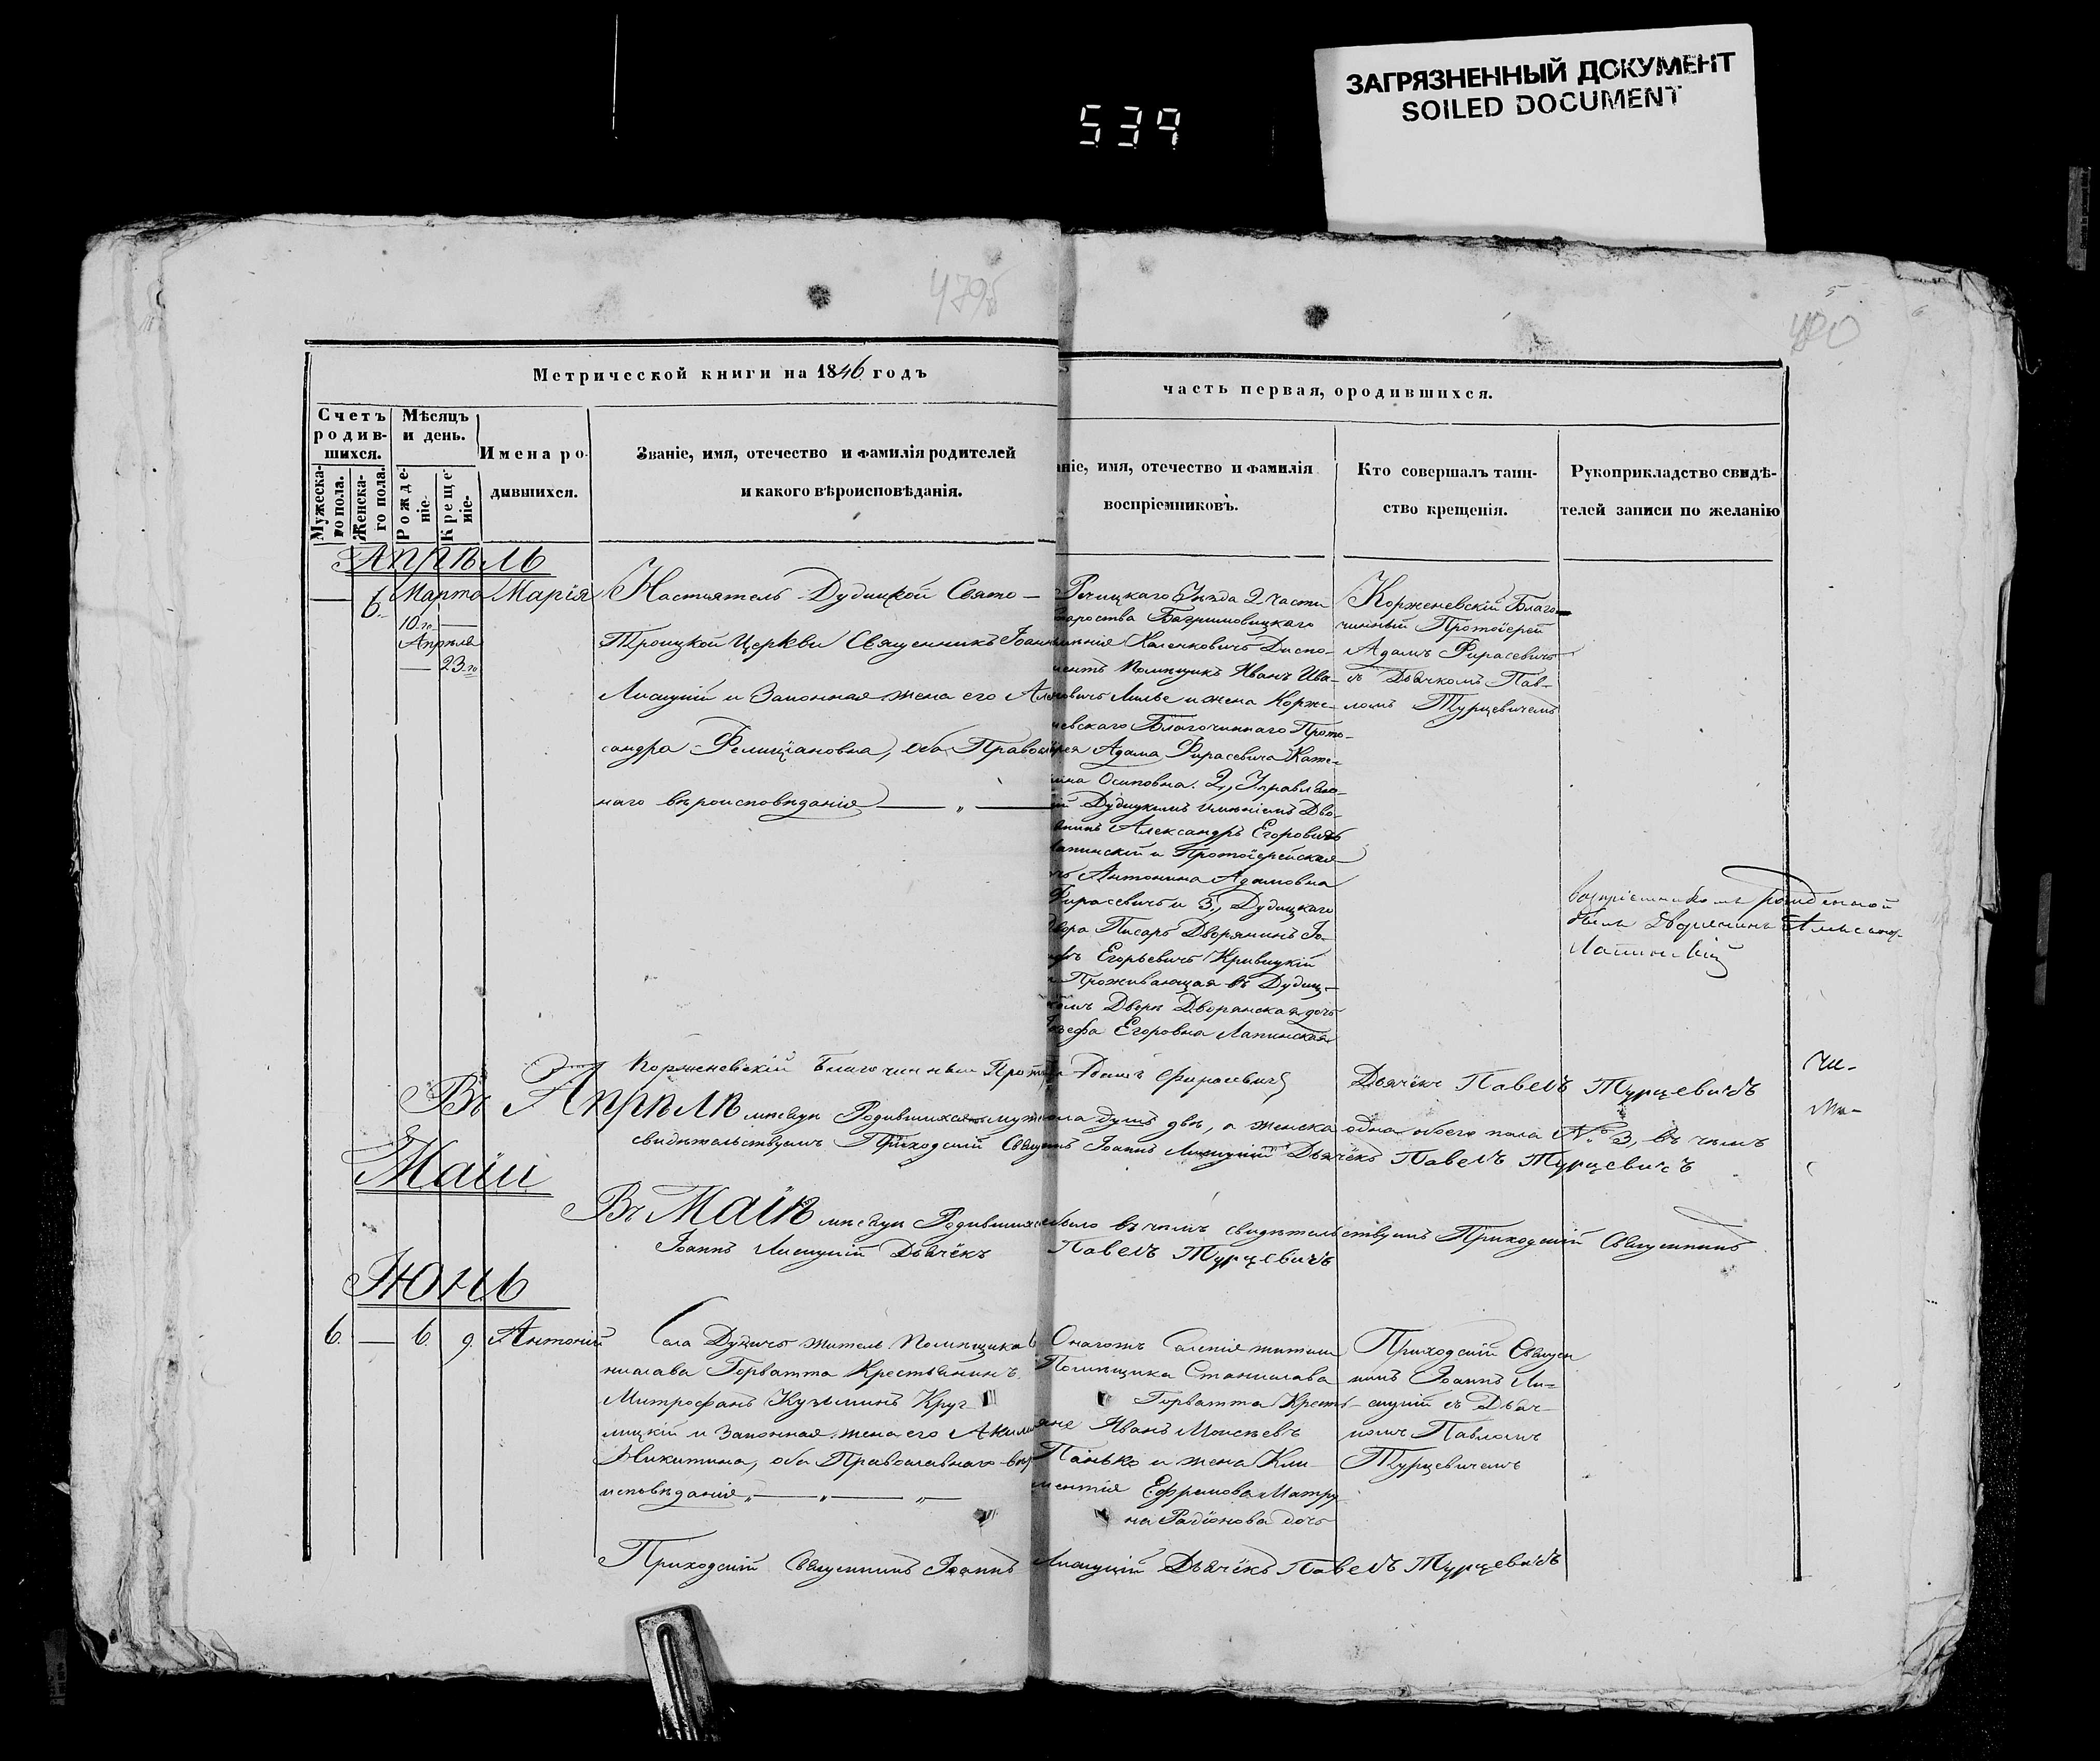 ЗАГРЯЗНЕННЫЙ ДОКУМЕНТ
SOILED DOCUMENT
539
479б
480
Метрической книги на 1846 годъ
часть первая, ородившихся.
Счетъ родив-шихся.
Мѣсяцъ и день.
Мужеска-го пола.
Женска-го пола.
Рожде-ніе.
Креще-ніе.
Имена ро-
дившихся.
Званіе, имя, отечество и фамилія родителей
и какого вѣроисповѣданія.
ніе, имя, отечество и фамилія
воспріемниковъ.
Кто совершалъ таин-
ство крещенія.
Рукоприкладство свидѣ-
телей записи по желанію
Апрѣль
6.
Марта
10го
Апрѣля
23го
Марія
Настоятель Дудицкой Свято-
Троицкой Церкви Священникъ Іоаннъ
Лисицкій и Законная жена его Алек
сандра Фелиціановна, оба Правосла
наго вѣроисповѣданія
Рѣчицкаго Уѣзда 2 части
Староства Багримовицкаго
имѣнія Халечковичъ Диспо-
нентъ Помѣщикъ Иванъ Ива-
новичъ Лилье и жена Корже-
невскаго Благочиннаго Прото-
іерея Адама Фирасевича Кате-
рина Осиповна. 2, Управляю-
щій Дудицкимъ имѣніемъ Дво-
рянинъ Александръ Егоровичъ
Лапинскій и Протоіерейская
дочь Антонина Адамовна
Фирасевичъ и 3, Дудицкаго
двора Писарь Дворянинъ Іо-
сифъ Егорьевичъ Кривицкій
и Проживающая въ Дудиц-
комъ Дворѣ Дворянская дочь
Іозефа Егоровна Лапинская
Корженевскій Благо-
чинный Протоіерей
Адамъ Фирасевичъ
съ Дьячкомъ Пав-
ломъ Турцевичемъ
Воспріемникомъ рожденной
былъ Дворянинъ Александръ
Лапинскій
Корженевскій Благочинный Протоіерей Адамъ Фирасевичъ Дьячёкъ Павелъ Турцевичъ
Въ Апрѣлѣ мѣсяцѣ Родившихся мужска пола душъ двѣ, а женска одна обоего пола № 3, въ чемъ
свидѣтельствуемъ Приходскій Священникъ Іоаннъ Лисицкій Дьячёкъ Павелъ Турцевичъ
Маій
Въ Маіѣ мѣсяцѣ Родившихся небыло въ чемъ свидѣтельствуемъ Приходскій Священникъ
Іоаннъ Лисицкій Дьячёкъ Павелъ Турцевичъ
Іюнь
6. — 6. 9. Антоній
Села Дудичъ житель Помѣщика Ста
нислава Горватта Крестьянинъ
Митрофанъ Кузьминъ Круг
лицкій и Законная жена его Акили
Никитина, оба Православнаго вѣро
исповѣданія
Онагожъ Селенія жители
Помѣщика Станислава
Горватта Кресть-
яне Иванъ Моисѣевъ
Панько и жена Кли-
ментія Ефремова Матру
на Радіонова дочь
Приходскій Священ
никъ Іоаннъ Ли-
сицкій съ Дьяч-
комъ Павломъ
Турцевичемъ
Приходскій Священникъ Іоаннъ Лисицкій Дьячёкъ Павелъ Турцевичъ